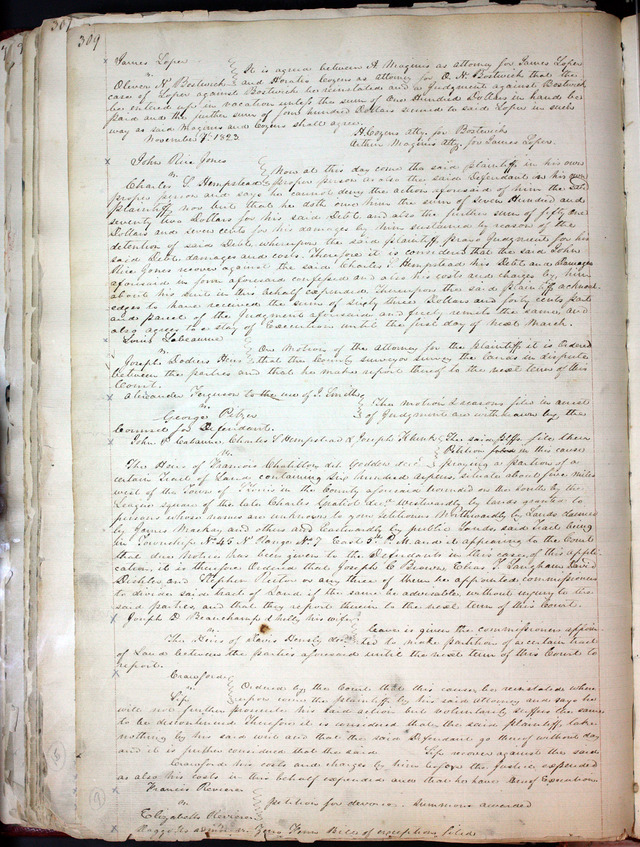 309
James Loper
vs.
It is agreed between A. Magenis as attorney for James Loper
Oliver N. Bostwick and Horatio Cozens as attorney for O. N. Bostwick that the
case of Loper against Bostwick be reinstated and a Judgment against Bostwick
be entered up in vacation unless the sum of One Hundred Dollars in hand be
paid and the further sum of four hundred Dollars secured to said Loper in such
way as said Magenis and Cozens shall agree.
November 7. 1823
H. Cozens atty. for Bostwick
Arthur Magenis atty. for James Loper.
John Rice Jones
vs.
Now at this day come the said plaintiff in his own
Charles S. Hempstead proper person as also the said Defendant in his own
proper person and says he cannot deny the action aforesaid of him the said
plaintiff nor but that he doth owe him the sum of Seven Hundred and
Seventy two Dollars for his said Debt and also the further sum of fifty one
Dollars and seven cents for his damages by him sustained by reason of the
detention of said Debt, whereupon the said plaintiff prays Judgment for his
said Debt damages and costs, Therefore it is considered that the said John
Rice Jones recover against the said Charles S. Hempstead his Debt and damages
aforesaid in form aforesaid confessed and also his costs and charges by him
about his suit in this behalf expended Thereupon the said plaintiff acknowl
edges to have received the sum of Sixty three Dollars and forty cents part
and parcel of the Judgment aforesaid and freely remits the same, and
also agrees to a stay of Execution until the first day of next March.
Louis Labeaume
vs.
On Motion of the attorney for the plaintiff it is Ordered
Joseph Hrs that the County surveyor survey the lands in dispute
between the parties and that he make report thereof to the next term of this
Court.
Alexander Ferguson to the use of J. Smith
vs.
The motion & reasons filed in arrest
George
of Judgment are withdrawn by the
Counsel for Defendant.
John P. Cabanne, Charles S. Hempstead & Joseph
The said ptffs. file their
vs.
Petition in this cause
The Heirs of Francis decd.
praying a partition of a
certain tract of Land containing Six hundred arpens, situate about five miles
west of the Town of St Louis in the County aforesaid bounded on the South by the
League square of the late Charles Gratiot decd. Westwardly by lands granted to
persons whose names are unknown to your petitioners Northwardly by Lands claimed
by James Mackay and others and Eastwardly by public lands, said Tract being
in Township No 45 N Range No 7 East 5th P. M. and it appearing to the Court
that due Notice has been given to the Defendants in this case, of this appli-
cation, it is therefore Ordered that Joseph C. Brown Elias T. Langham David
and Stephen or any three of them be appointed commissioners
to divide said tract of Land if the same be advisable without injury to the
said parties, and that they report therein to the next term of this Court.
Joseph D Beauchamp & betty his wife
vs.
Leave is given the commissioners appoin
The Heirs of decd.
ted to make partition of a certain tract
of Land between the parties aforesaid until the next term of this Court to
report.
Crawford
vs.
Ordered by the Court that this cause be reinstated where
Sip
upon came the plaintiff by his said attorney and says he
will not further prosecute his said suit but voluntarily suffers the same
to be discontinued Therefore it is considered that the said plaintiff take
nothing by his said writ and that the said Defendant go thereof without day
and it is further considered that the said Sip recover against the said
Crawford his costs and charges by him before the Justice expended
as also his costs in this behalf expended and that he have thereof Execution
Francis Reviere
vs.
petition for divorce. Summons awarded
Elizabeth Reviere
Bills of exceptions filed